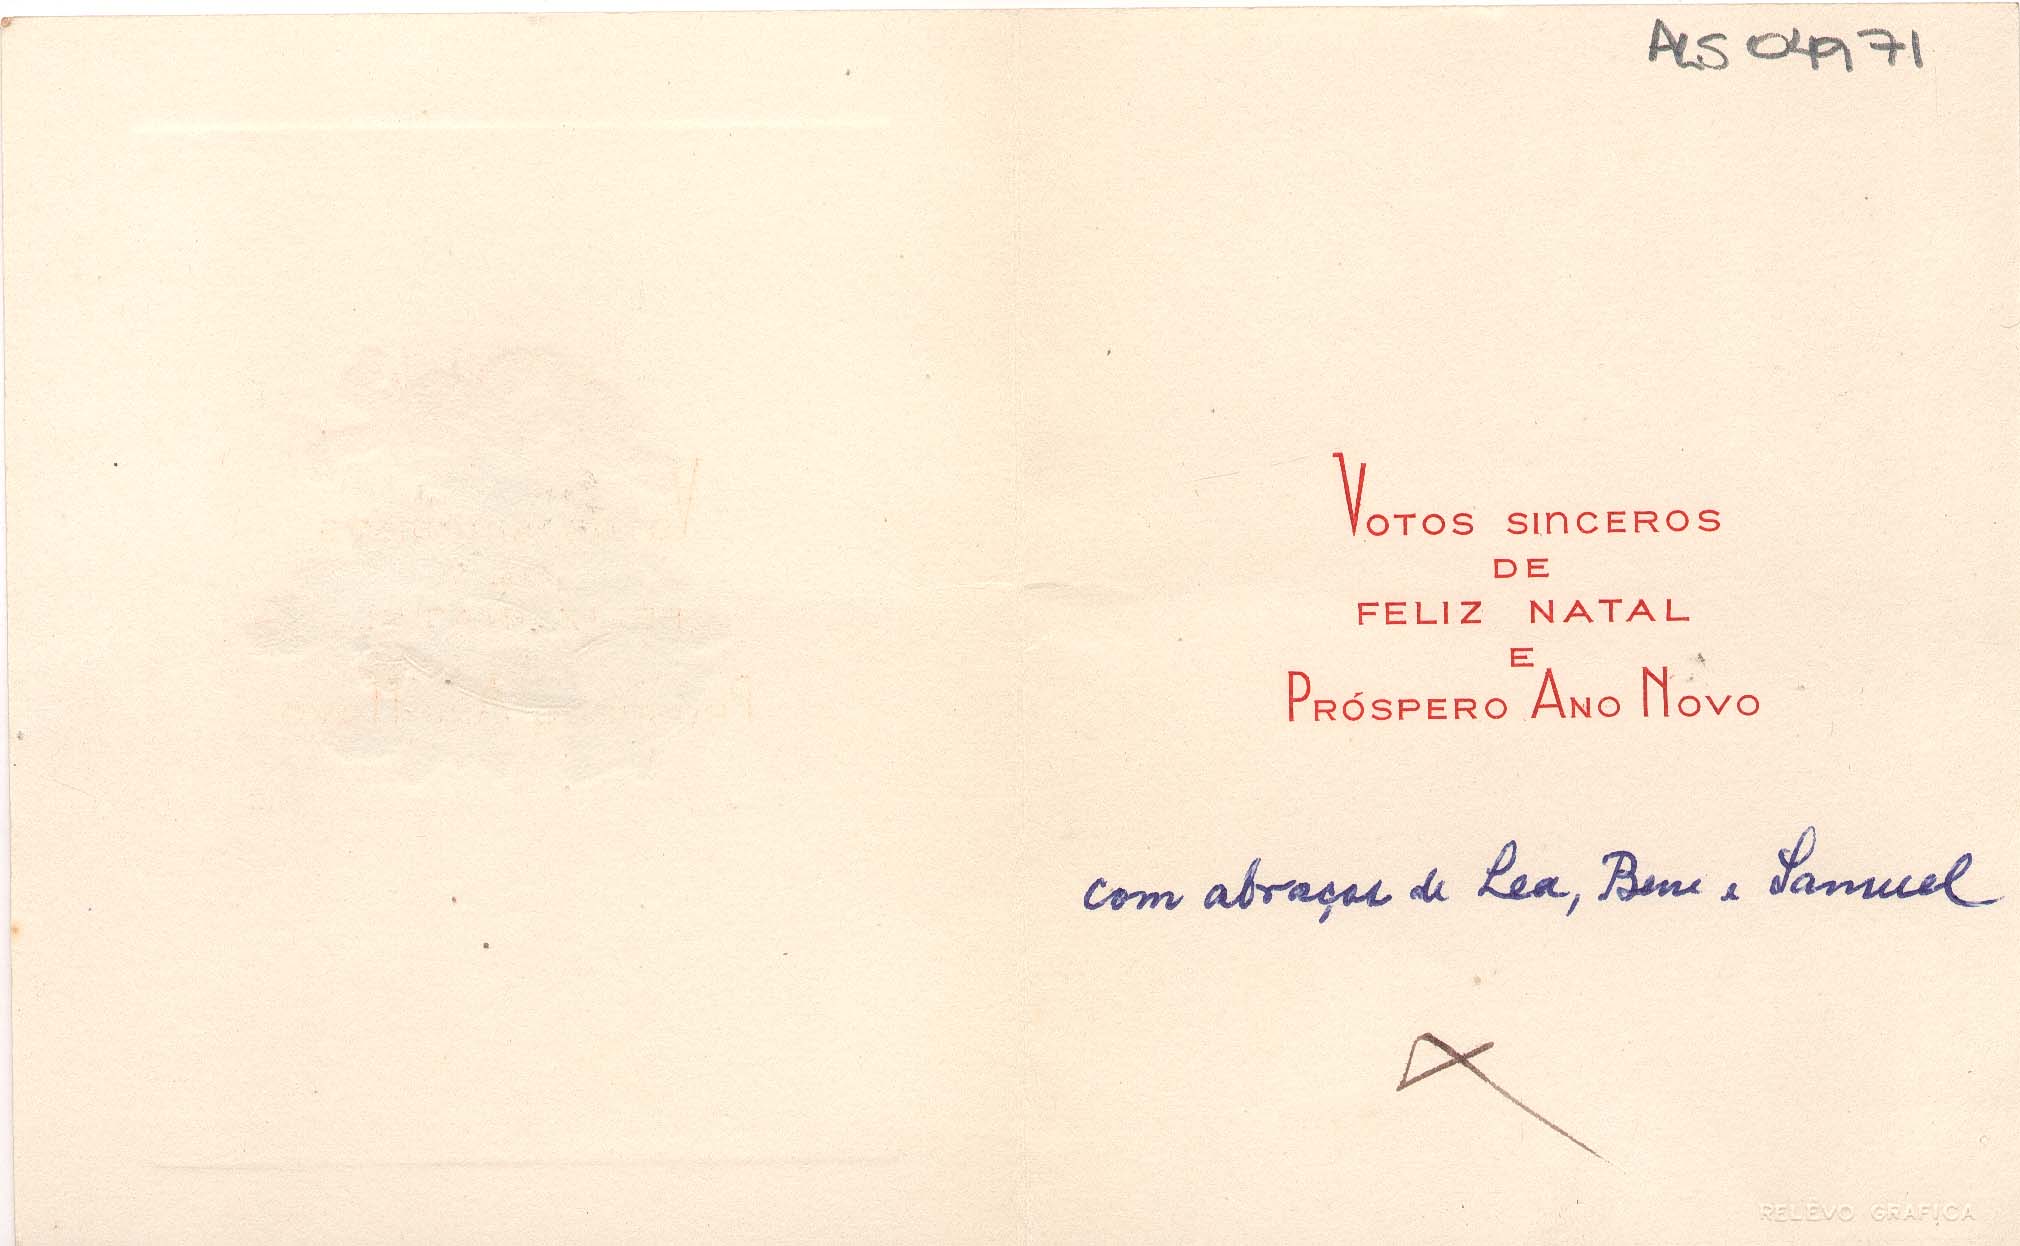 ALS 04971
Votos sinceros
de
feliz natal
e
Próspero Ano Novo
com abraços de Lea, Bene e Samuel
RELÊVO GRÁFICA